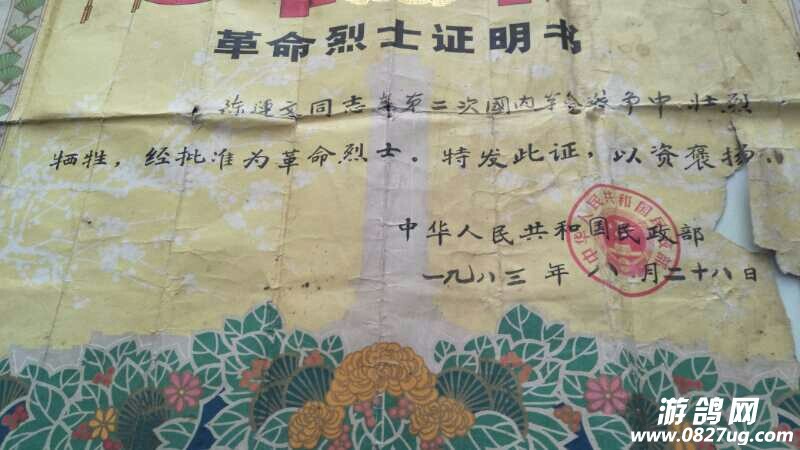 革命烈士证明书
陈莲文同志在第二次國内革命战争中壮烈
牺牲，经批准为革命烈士。特发此证，以资褒扬。
中华人民共和国民政部
一九八三年八月二十八日
中华人民共和国民政部
游鸽网
www.0827ug.com